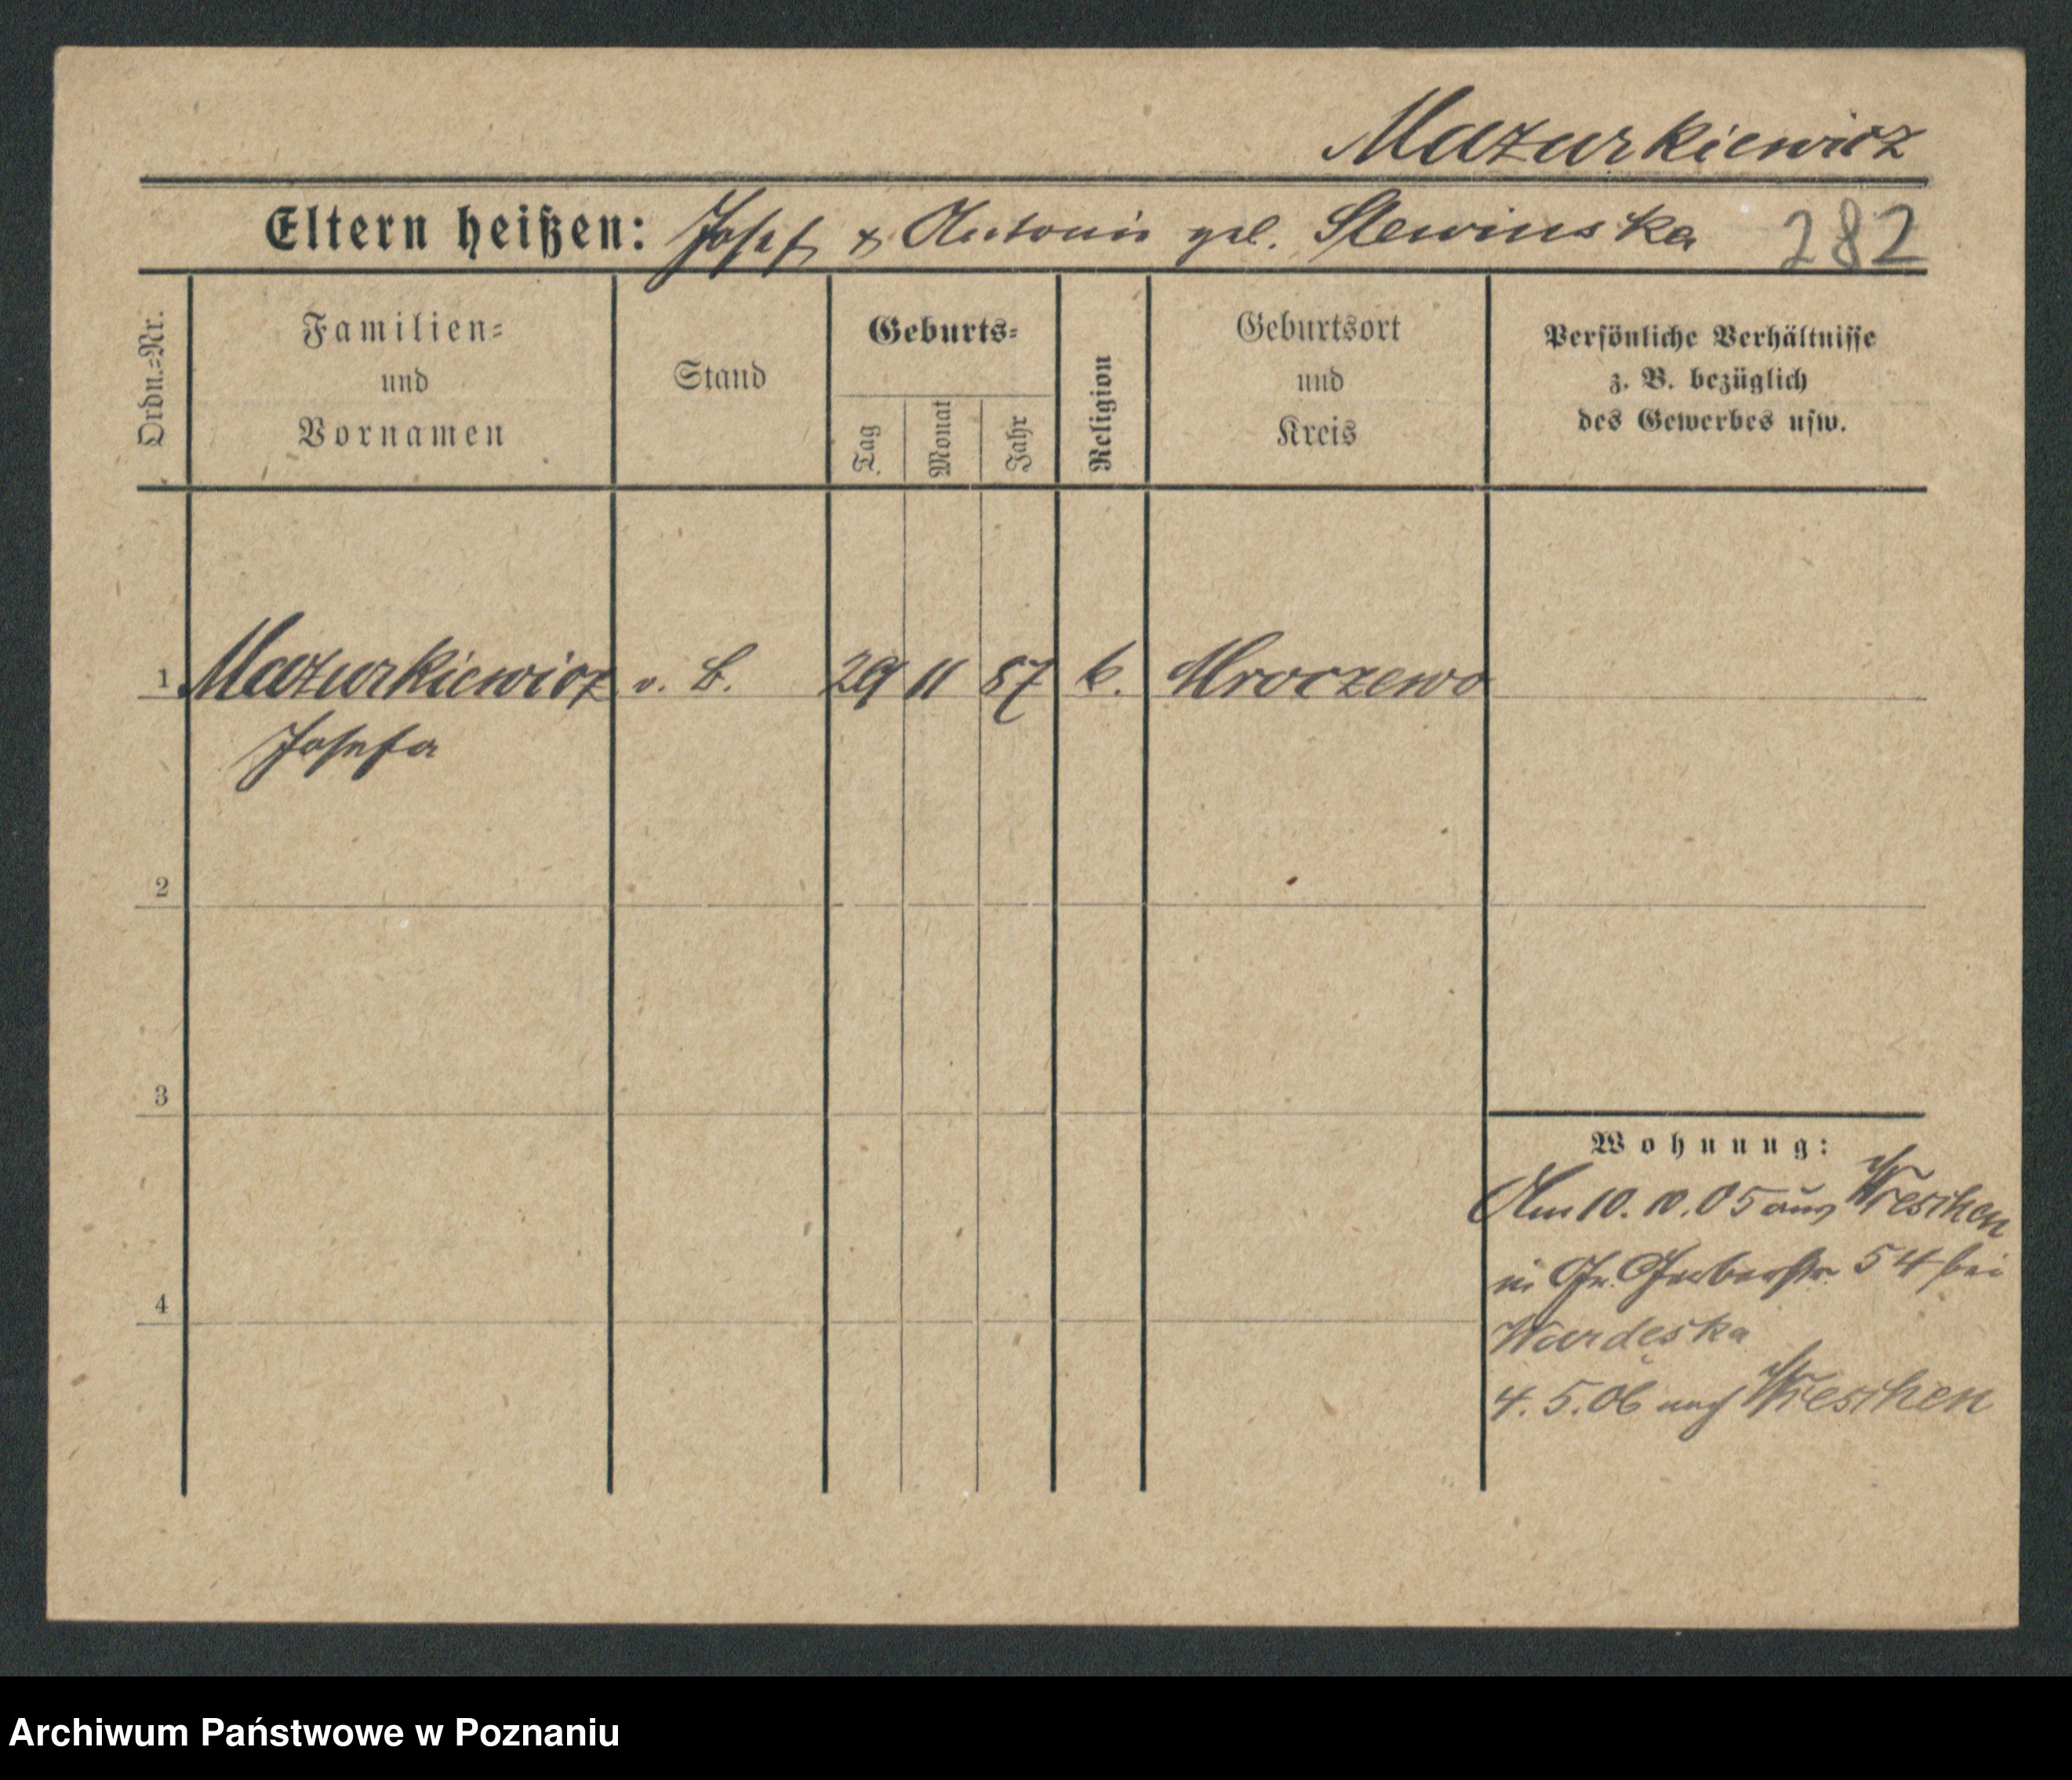 Mazurkiewicz
Eltern heißen: Josef & Antonie geb. Slewinska 282
Ordn.=Nr.
Familien=
und
Vornamen
Stand
Geburts=
Tag
Monat
Jahr
Religion
Geburtsort
und
Kreis
Persönliche Verhältnisse
z. B. bezüglich
des Gewerbes usw.
1 Mazurkiewicz o. B. 29 11 87 k. Mroczewo
Josefa
2
3
4
Wohnung:
Am 10. 10. 05 aus Wreschen
in Gr. Gerberstr. 54 bei
Wardęska
4. 5. 06 nach Wreschen
Archiwum Państwowe w Poznaniu